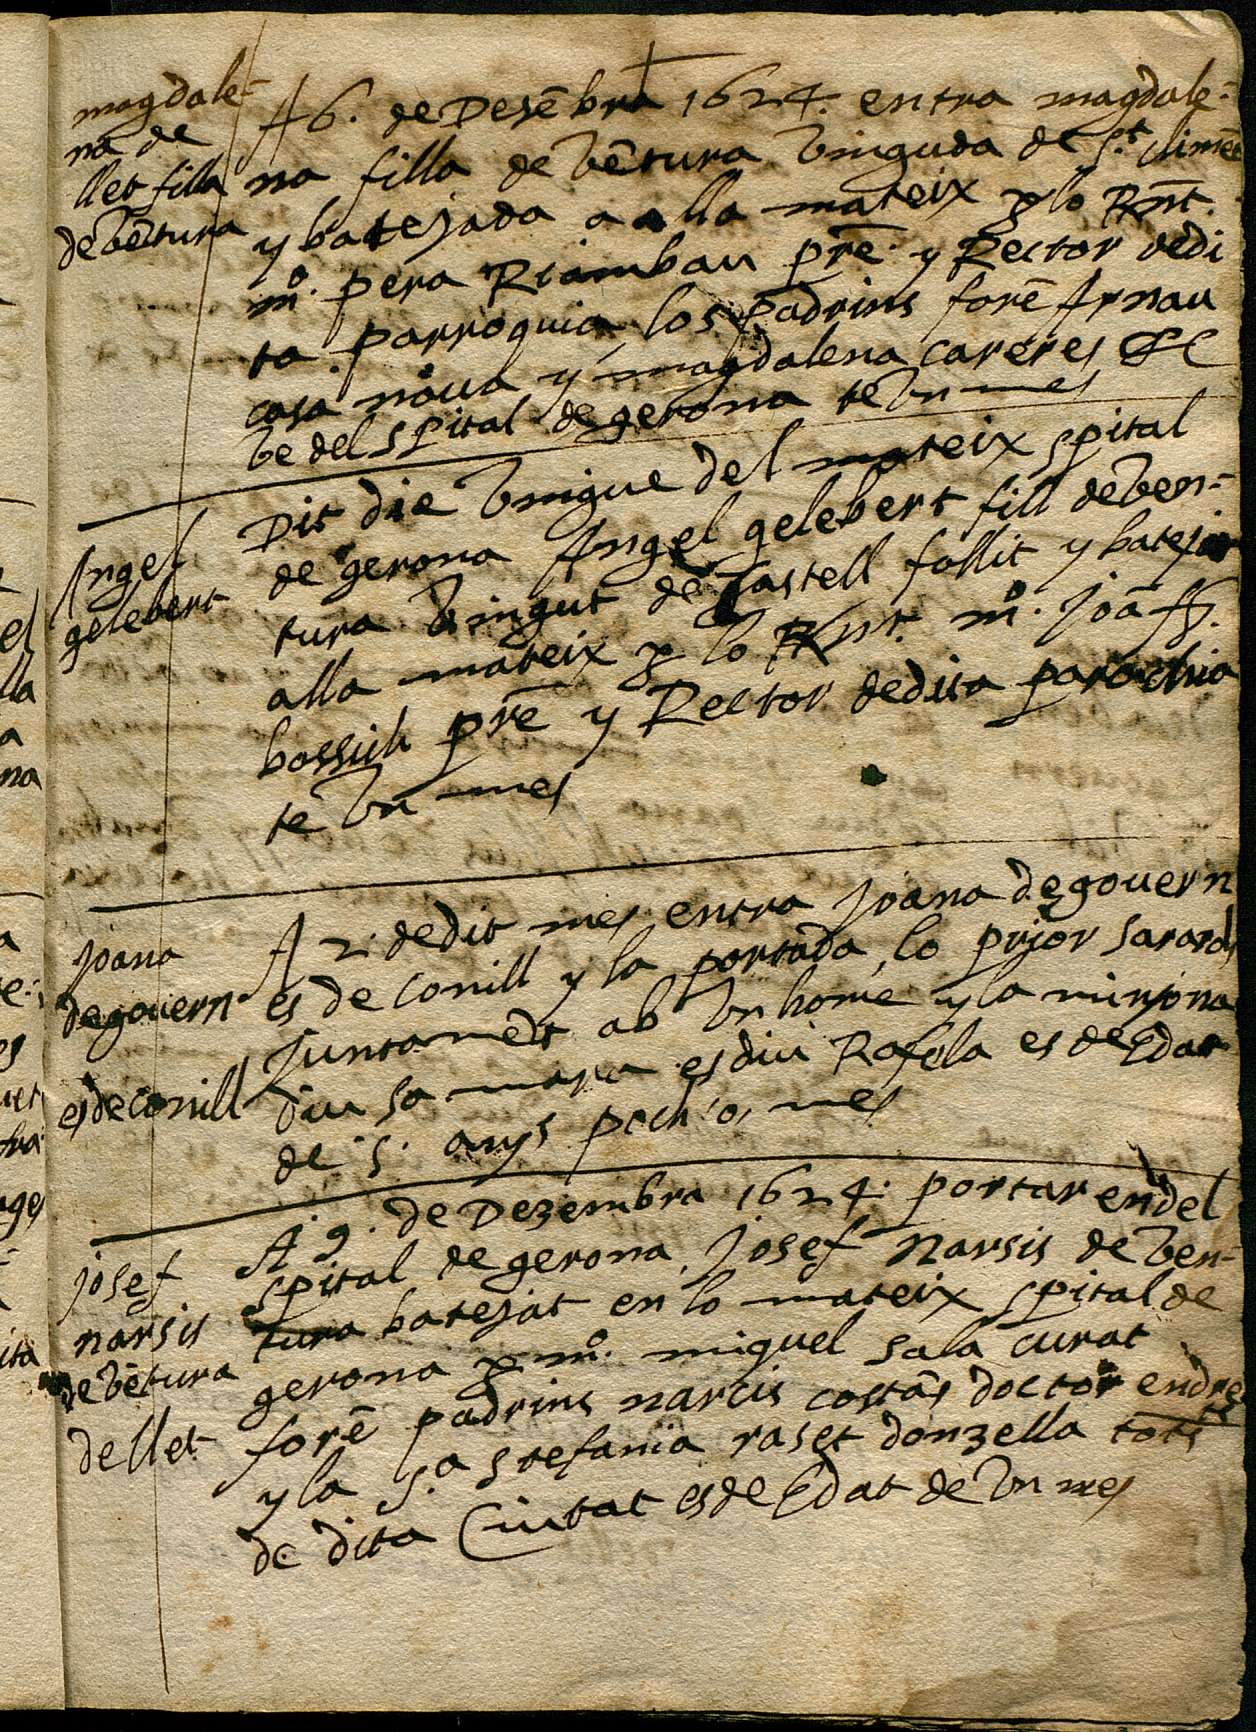 magdale-
na de
llet filla
de vētura
A 6. de Desēbra 1624. entra magdale-
na filla de vētura vinguda de St. climēt
y batejada a alla mateix p lo Rnt.
mo. pera Riambau pre. y Rector dedi
ta parroquia, los padrins forē Arnau
casa nova y magdalena careres &c
ve del spital de gerona te vn mes
Angel
gelebert
Dit die vingue del mateix spital
de gerona Angel gelebert fill de ven-
tura vingut de Castell follit y batejat
alla mateix p lo Rnt. mo. joā
bossich pre y Rector de dita parochia
te vn mes
joana
de govern
es de conill
A 2. de dit mes entra joana de govern
es de conill y la portada lo prior
juntamēt ab vn home y la minyona
diu sa mara es diu Rafela es de Edat
de 5. anys poch mes
josef
narsis
de vētura
de llet
A 9. de Dezembra 1624. portaren del
spital de gerona, josef Narsis de ven-
tura batejat en lo mateix spital de
gerona p mo. miquel sala curat
forē padrins narcis costas doctor en drets
y la Sa. stefania raset donzella tots
de dita Ciutat es de Edat de vn mes